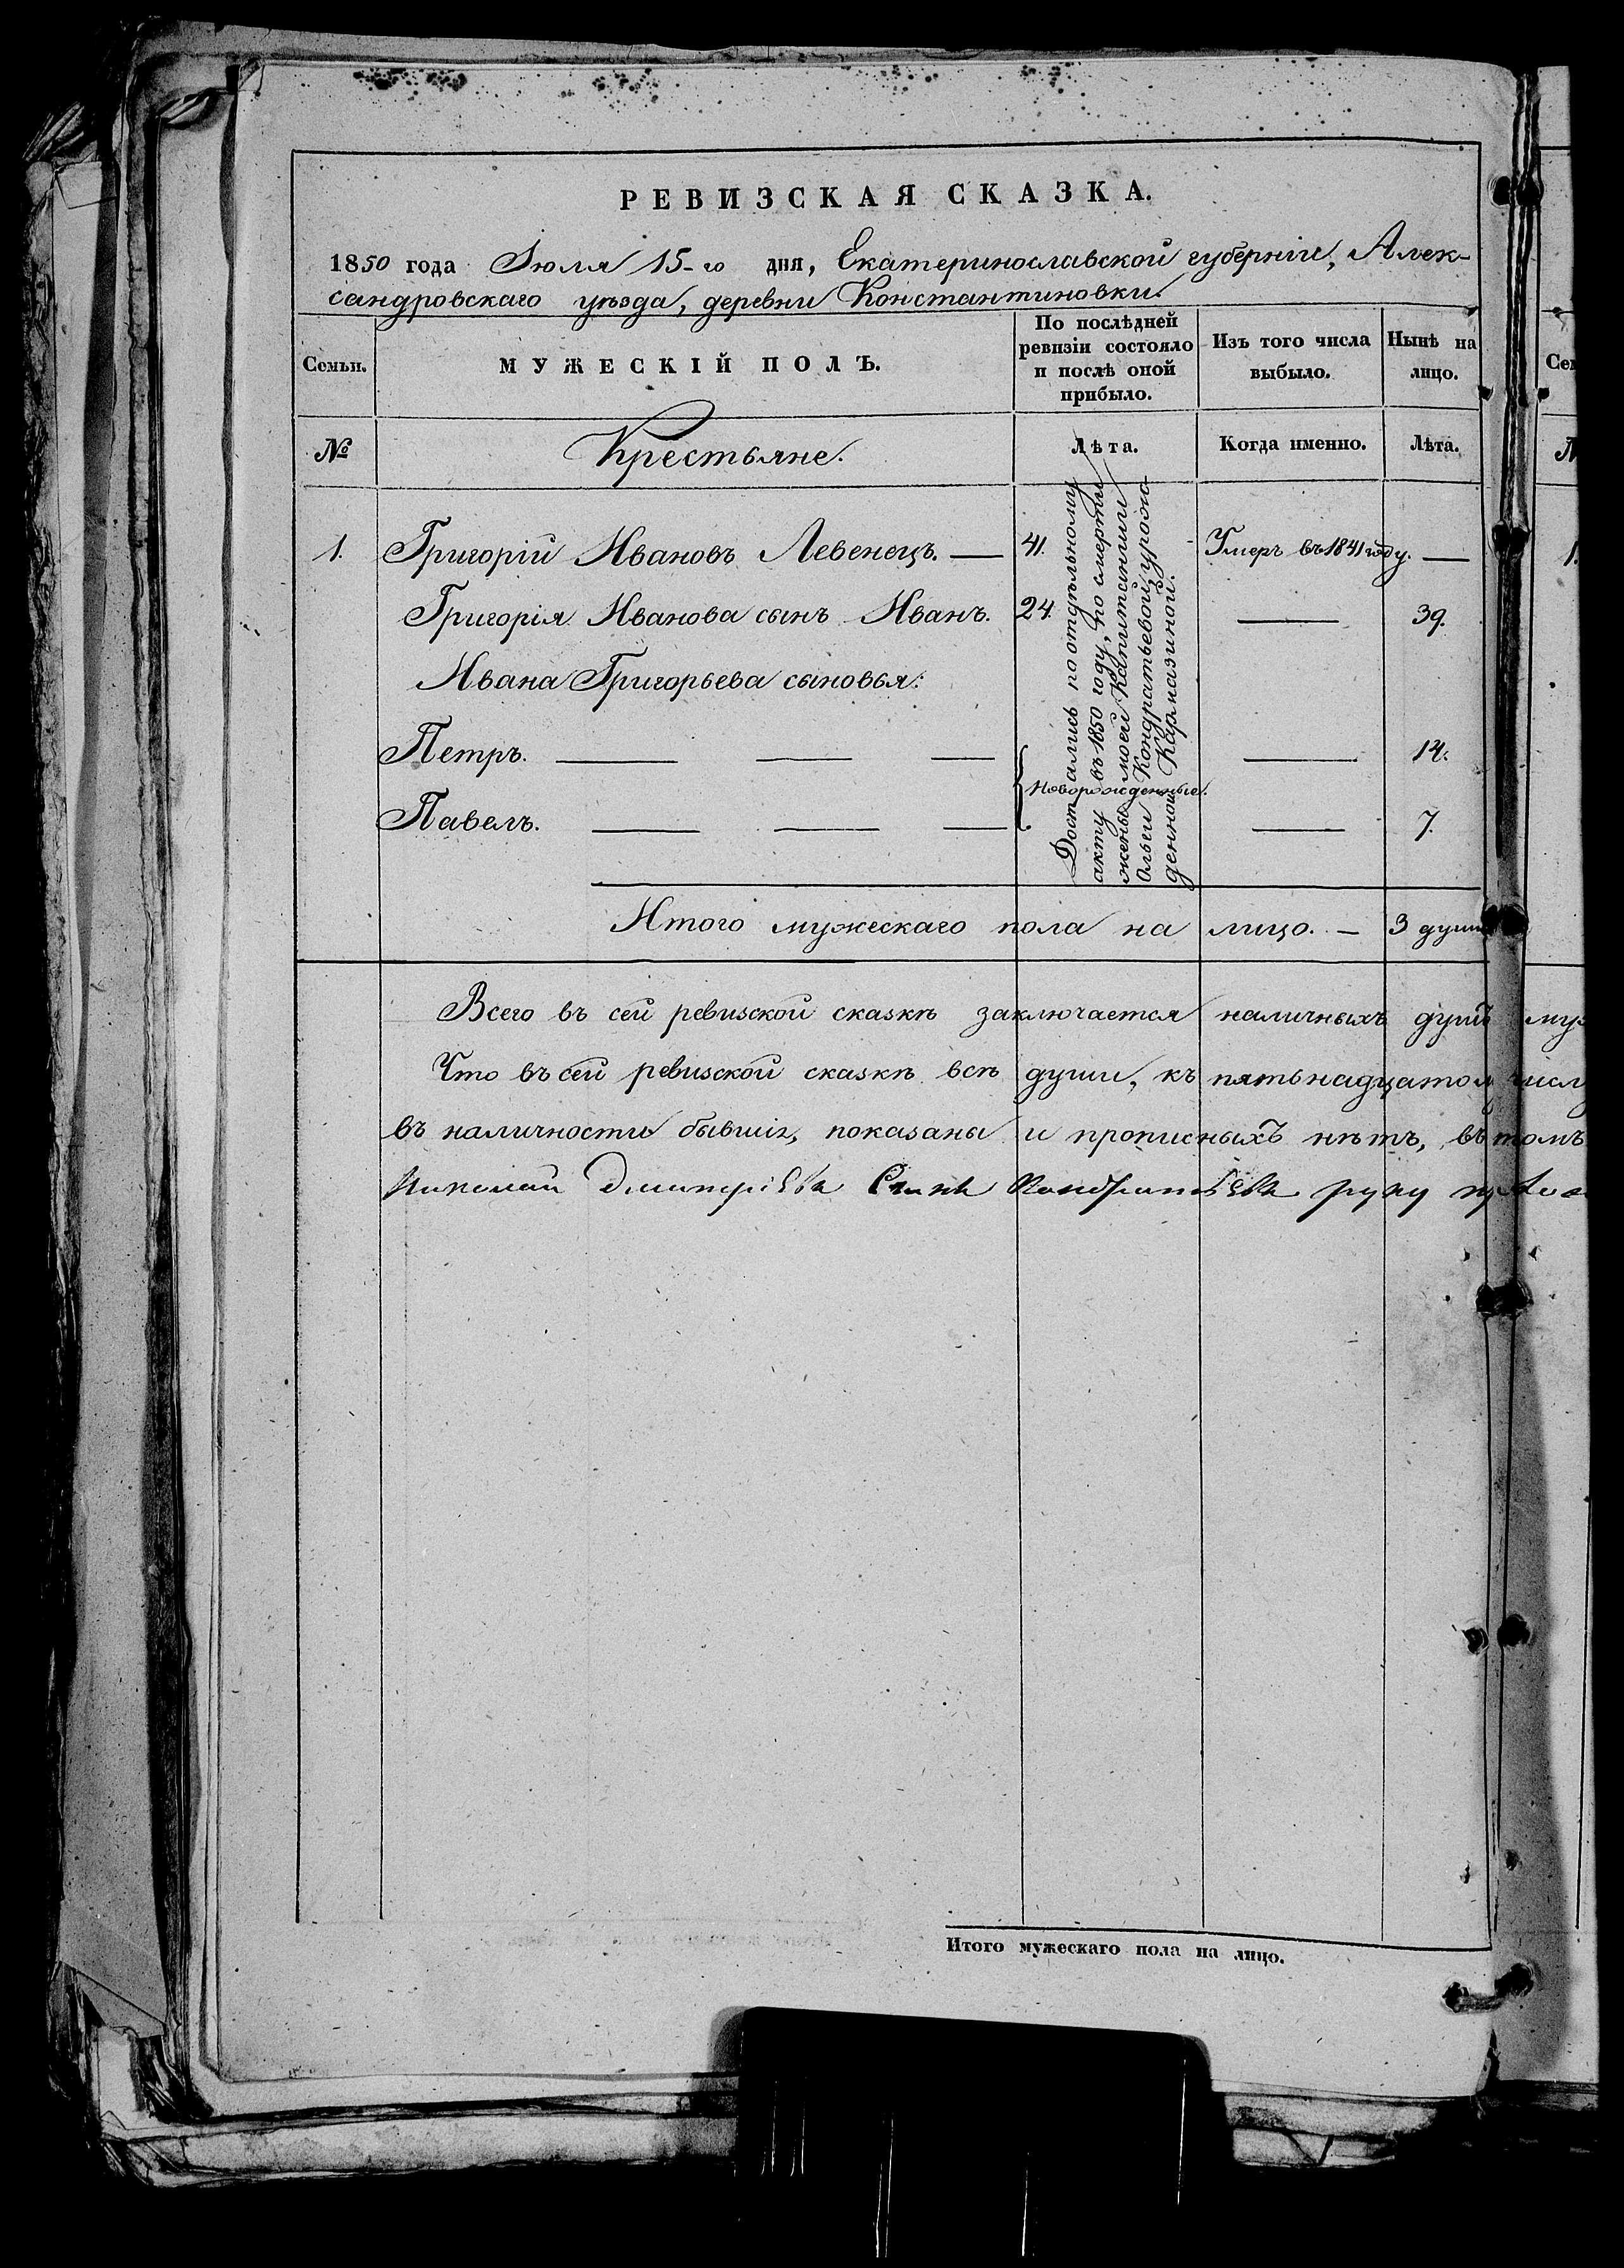 РЕВИЗСКАЯ СКАЗКА.
1850 года Июля 15-го дня, Екатеринославской губерніи, Алек-
сандровскаго уѣзда, деревни Константиновки.
Семьи.
МУЖЕСКІЙ ПОЛЪ.
По послѣдней
ревизіи состояло
и послѣ оной
прибыло.
Изъ того числа
выбыло.
Нынѣ на
лицо.
№
Крестьяне.
Лѣта.
Когда именно.
Лѣта.
1. Григорій Ивановъ Левенецъ. — 41. Умеръ въ 1841 году. —
Григорія Иванова сынъ Иванъ. 24. — 39.
Ивана Григорьева сыновья:
Петръ. — — — — 14.
Новорожденные.
Павелъ. — — — — 7.
Достались по отдѣльному
акту въ 1850 году, по смерти
жены моей Капитанши
Ольги Кондратьевой урож-
денной Карназиной.
Итого мужескаго пола на лицо. — 3 души
Всего въ сей ревизской сказкѣ заключается наличныхъ душъ муж
Что въ сей ревизской сказкѣ всѣ души, къ пятьнадцатому числу
въ наличности бывшіе, показаны и прописныхъ нѣтъ, въ томъ
Николай Дмитріевъ Сынъ Кондратьевъ руку
Итого мужескаго пола на лицо.